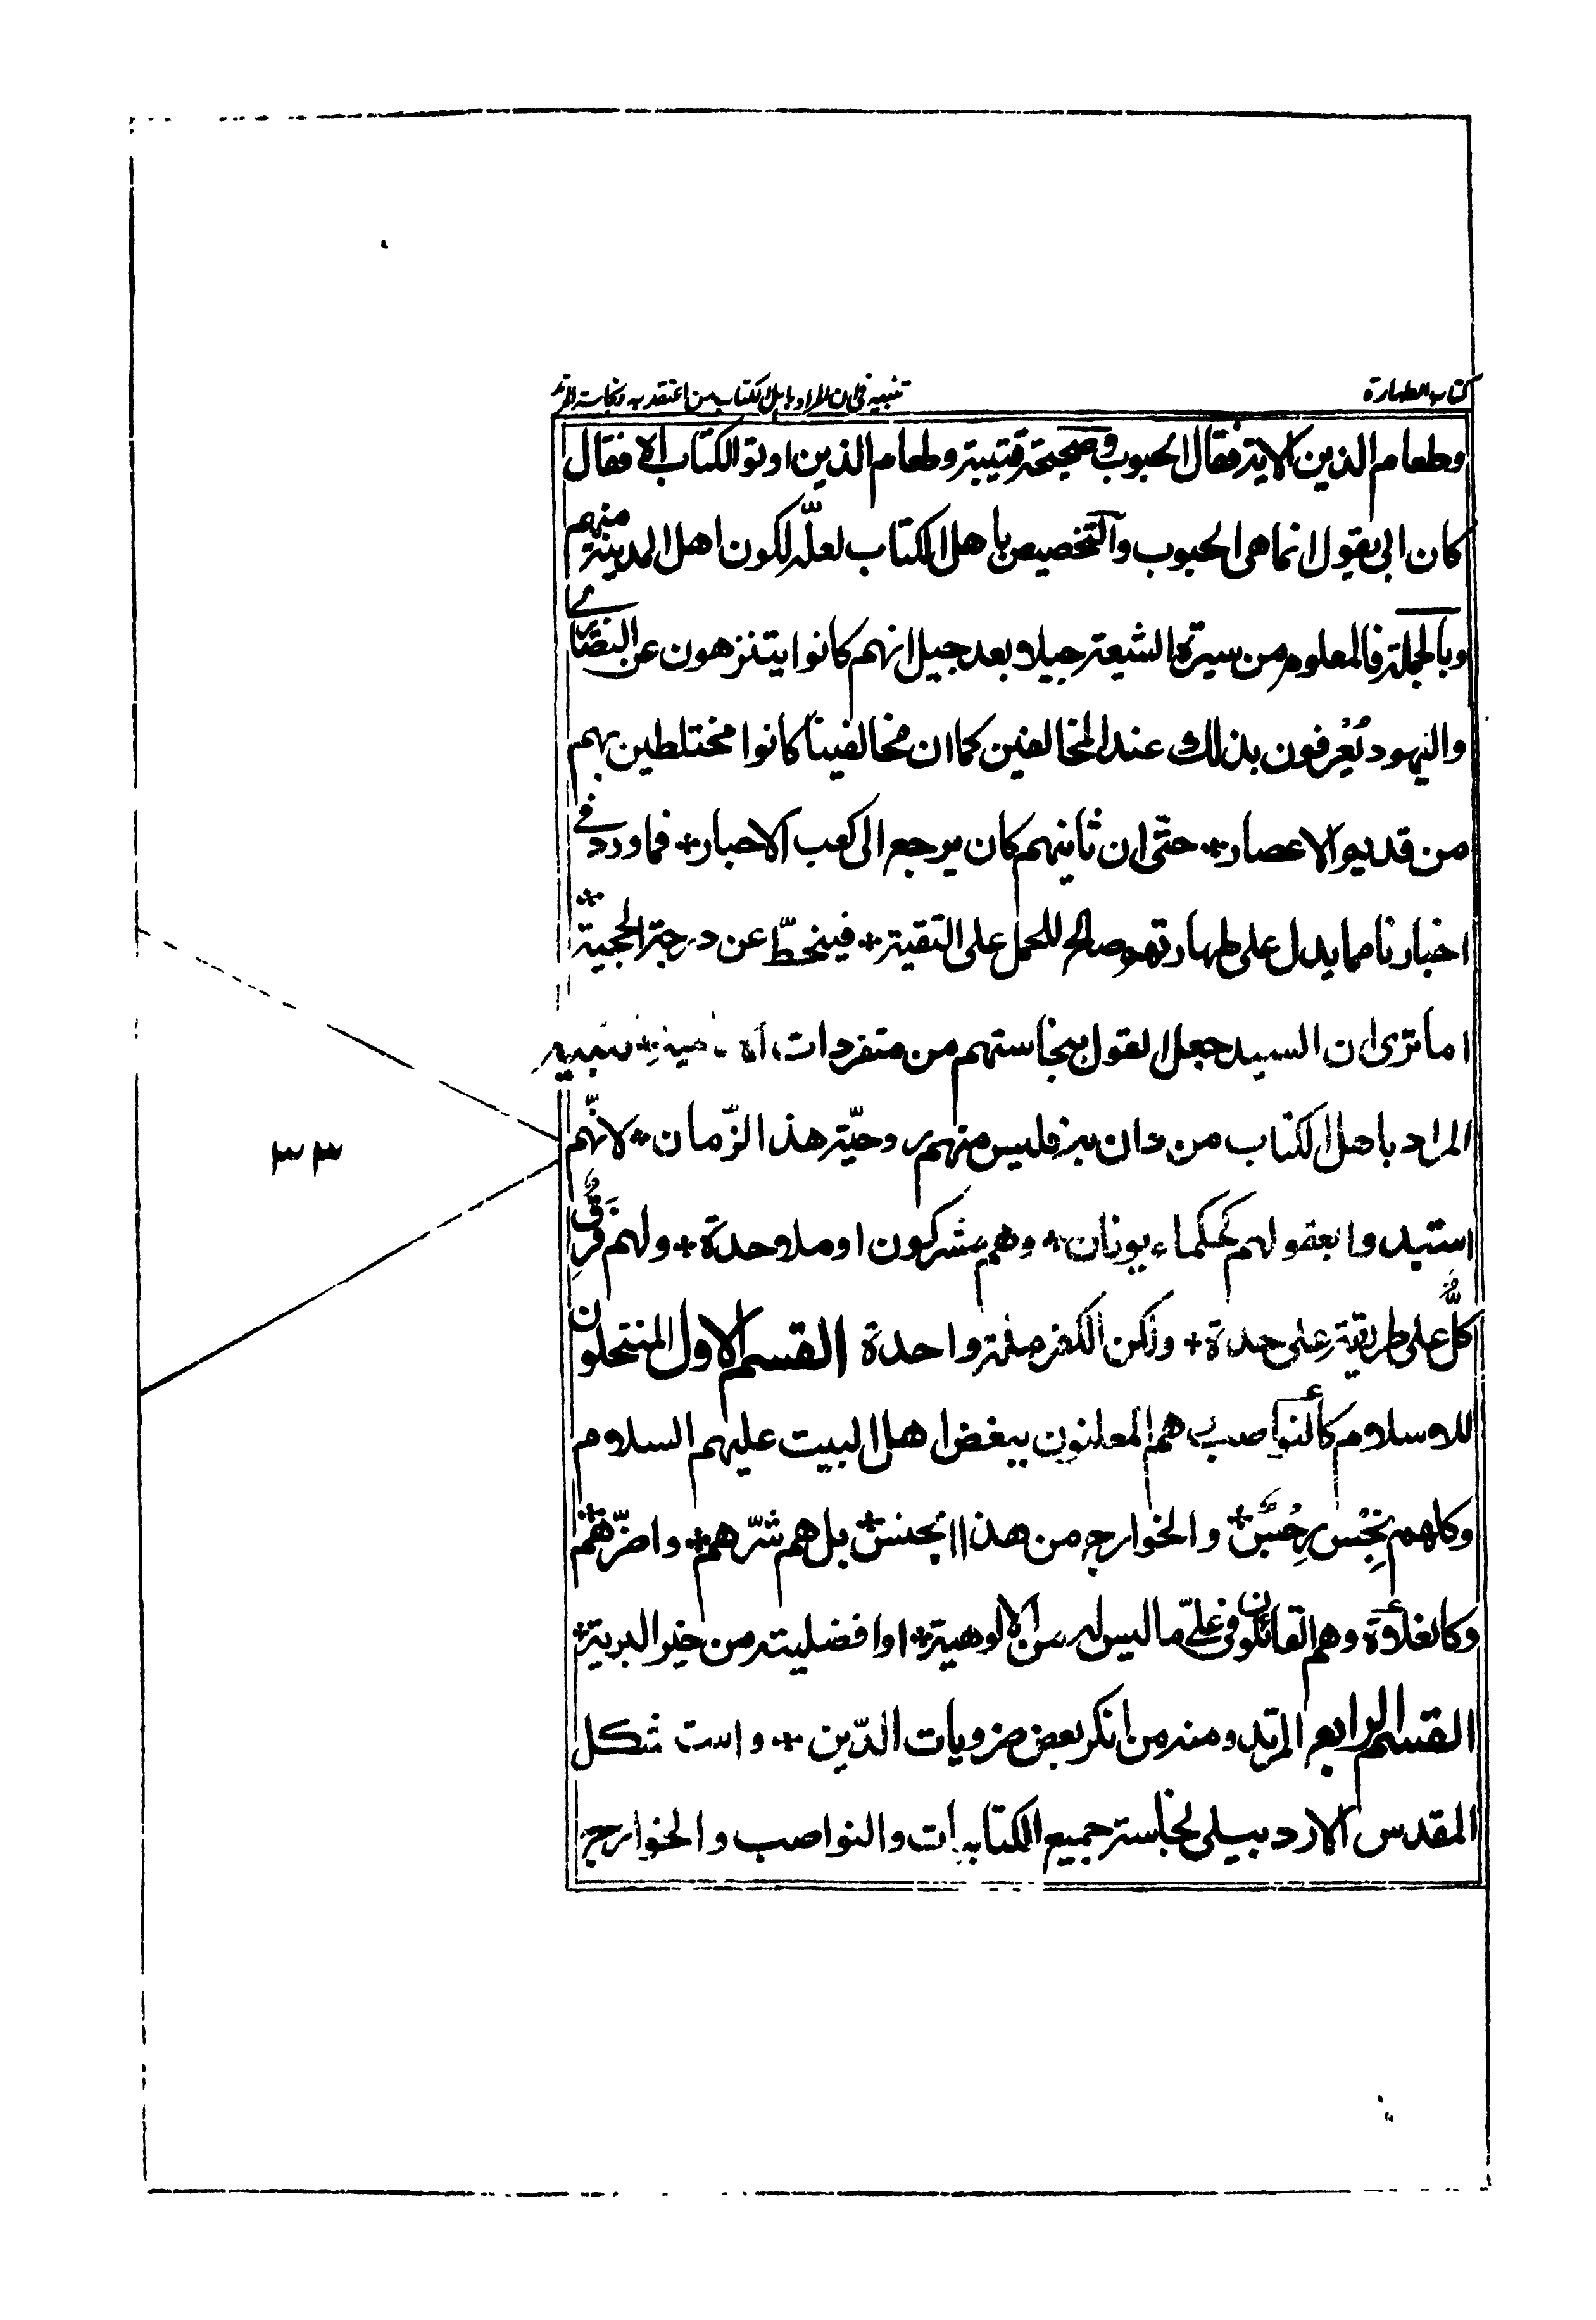 كتاب الطهارة
تنبيه في ان المراد باهل الكتاب من اعتقد به ونجاسة المرتد
وطعام الذين الاية فقال الحبوب وصحيحة قتيبة وطعام الذين اوتو الكتاب الاية فقال
كان ابي يقول انما هي الحبوب والتخصيص باهل الكتاب لعله لكون اهل المدينة منهم
وبالجملة فالمعلوم من سيرة الشيعة جيلا بعد جيل انهم كانوا يتنزهون عن النصارى
واليهود يُعْرفون بذلك عند المخالفين كما ان مخالفينا كانوا مختلطين بهم
من قديم الاعصار حتّى ان ثانيهم كان يرجع الى كعب الاحبار فما ورد في
اخبارنا مما يدل على طهارتهم صالح للحمل على التقية فينحطّ عن درجة الحجيّة
اما ترى ان السيد جعل القول بنجاستهم من متفردات تنبيه
المراد باهل الكتاب من دان به فليس منهم روحيّة هذا الزّمان لانّهم
استبدوا بعقولهم كحكماء يونان وهم مشركون او ملاحدة ولهم فِرَقٌ
كلٌّ على طريقةٍ على حدة ولكن الكفر ملة واحدة القسم الاول المنتحلون
للاسلام كالنواصب هم المعلنون ببغض اهل البيت عليهم السلام
وكلهم نجس رجس والخوارج من هذا الجنس بل هم شرّهم واضرّهم
وكالغلاة وهم القائلون في عليّ ما ليس له من الالوهية او افضليته من خير البرية
القسم الرابع المرتد ومنه من انكر بعض ضروريات الدّين واستشكل
المقدس الاردبيلي نجاسة جميع الكتابيات والنواصب والخوارج
٣٣